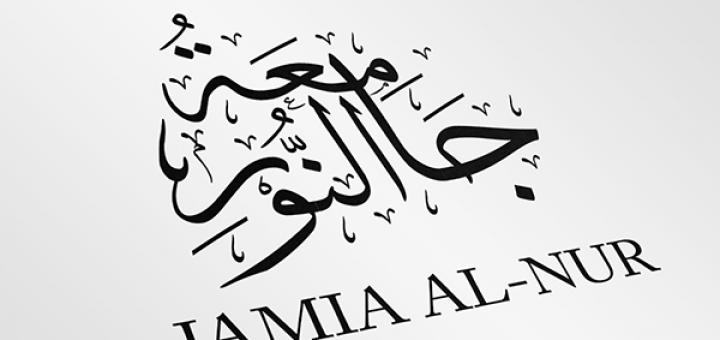 جَامِعَةُ النُّورِ
JAMIA AL-NUR